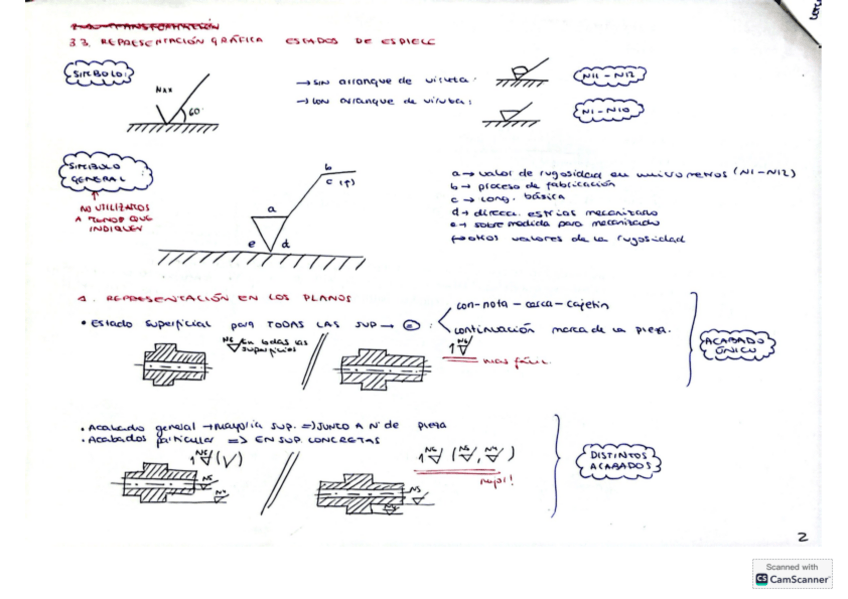 3.3. REPRESENTACIÓN GRÁFICA ESTADOS DE
SÍMBOLO:
NXX
60°
→ SIN arranque de viruta:
N11 - N12
→ CON arranque de viruta:
N1 - N10
SÍMBOLO GENERAL
NO UTILIZARLOS
A MENOS QUE
INDIQUEN
a
b
c (f)
e
d
a → valor de rugosidad en micrometros (N1-N12)
b → proceso de fabricación
c → long. básica
d → direcc. estrías mecanizado
e → sobre medida para mecanizado
f → otros valores de la rugosidad
4. REPRESENTACIÓN EN LOS PLANOS
• Estado superficial para TODAS LAS SUP →
con-nota - cerca - cajetín
continuación marca de la pieza.
N6 En todas las
superficies
1 N6
más fácil.
ACABADO
ÚNICO
• Acabado general → mayoría SUP. ⇒ JUNTO A Nº de pieza
• Acabados particular ⇒ EN SUP. CONCRETAS
1 N6 (√)
mejor!
DISTINTOS
ACABADOS
2
Scanned with
CS CamScanner